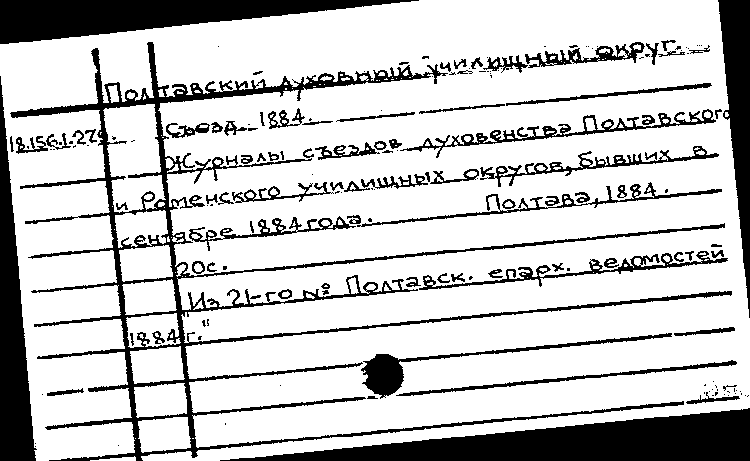 Полтавский духовный училищный округ.
18.156.1.279. Съезд. 1884.
Журналы съездов духовенства Полтавского
и Роменского училищных округов, бывших в
сентябре 1884 года. Полтава, 1884.
20с.
"Из 21-го № Полтавск. епарх. ведомостей
1884 г."